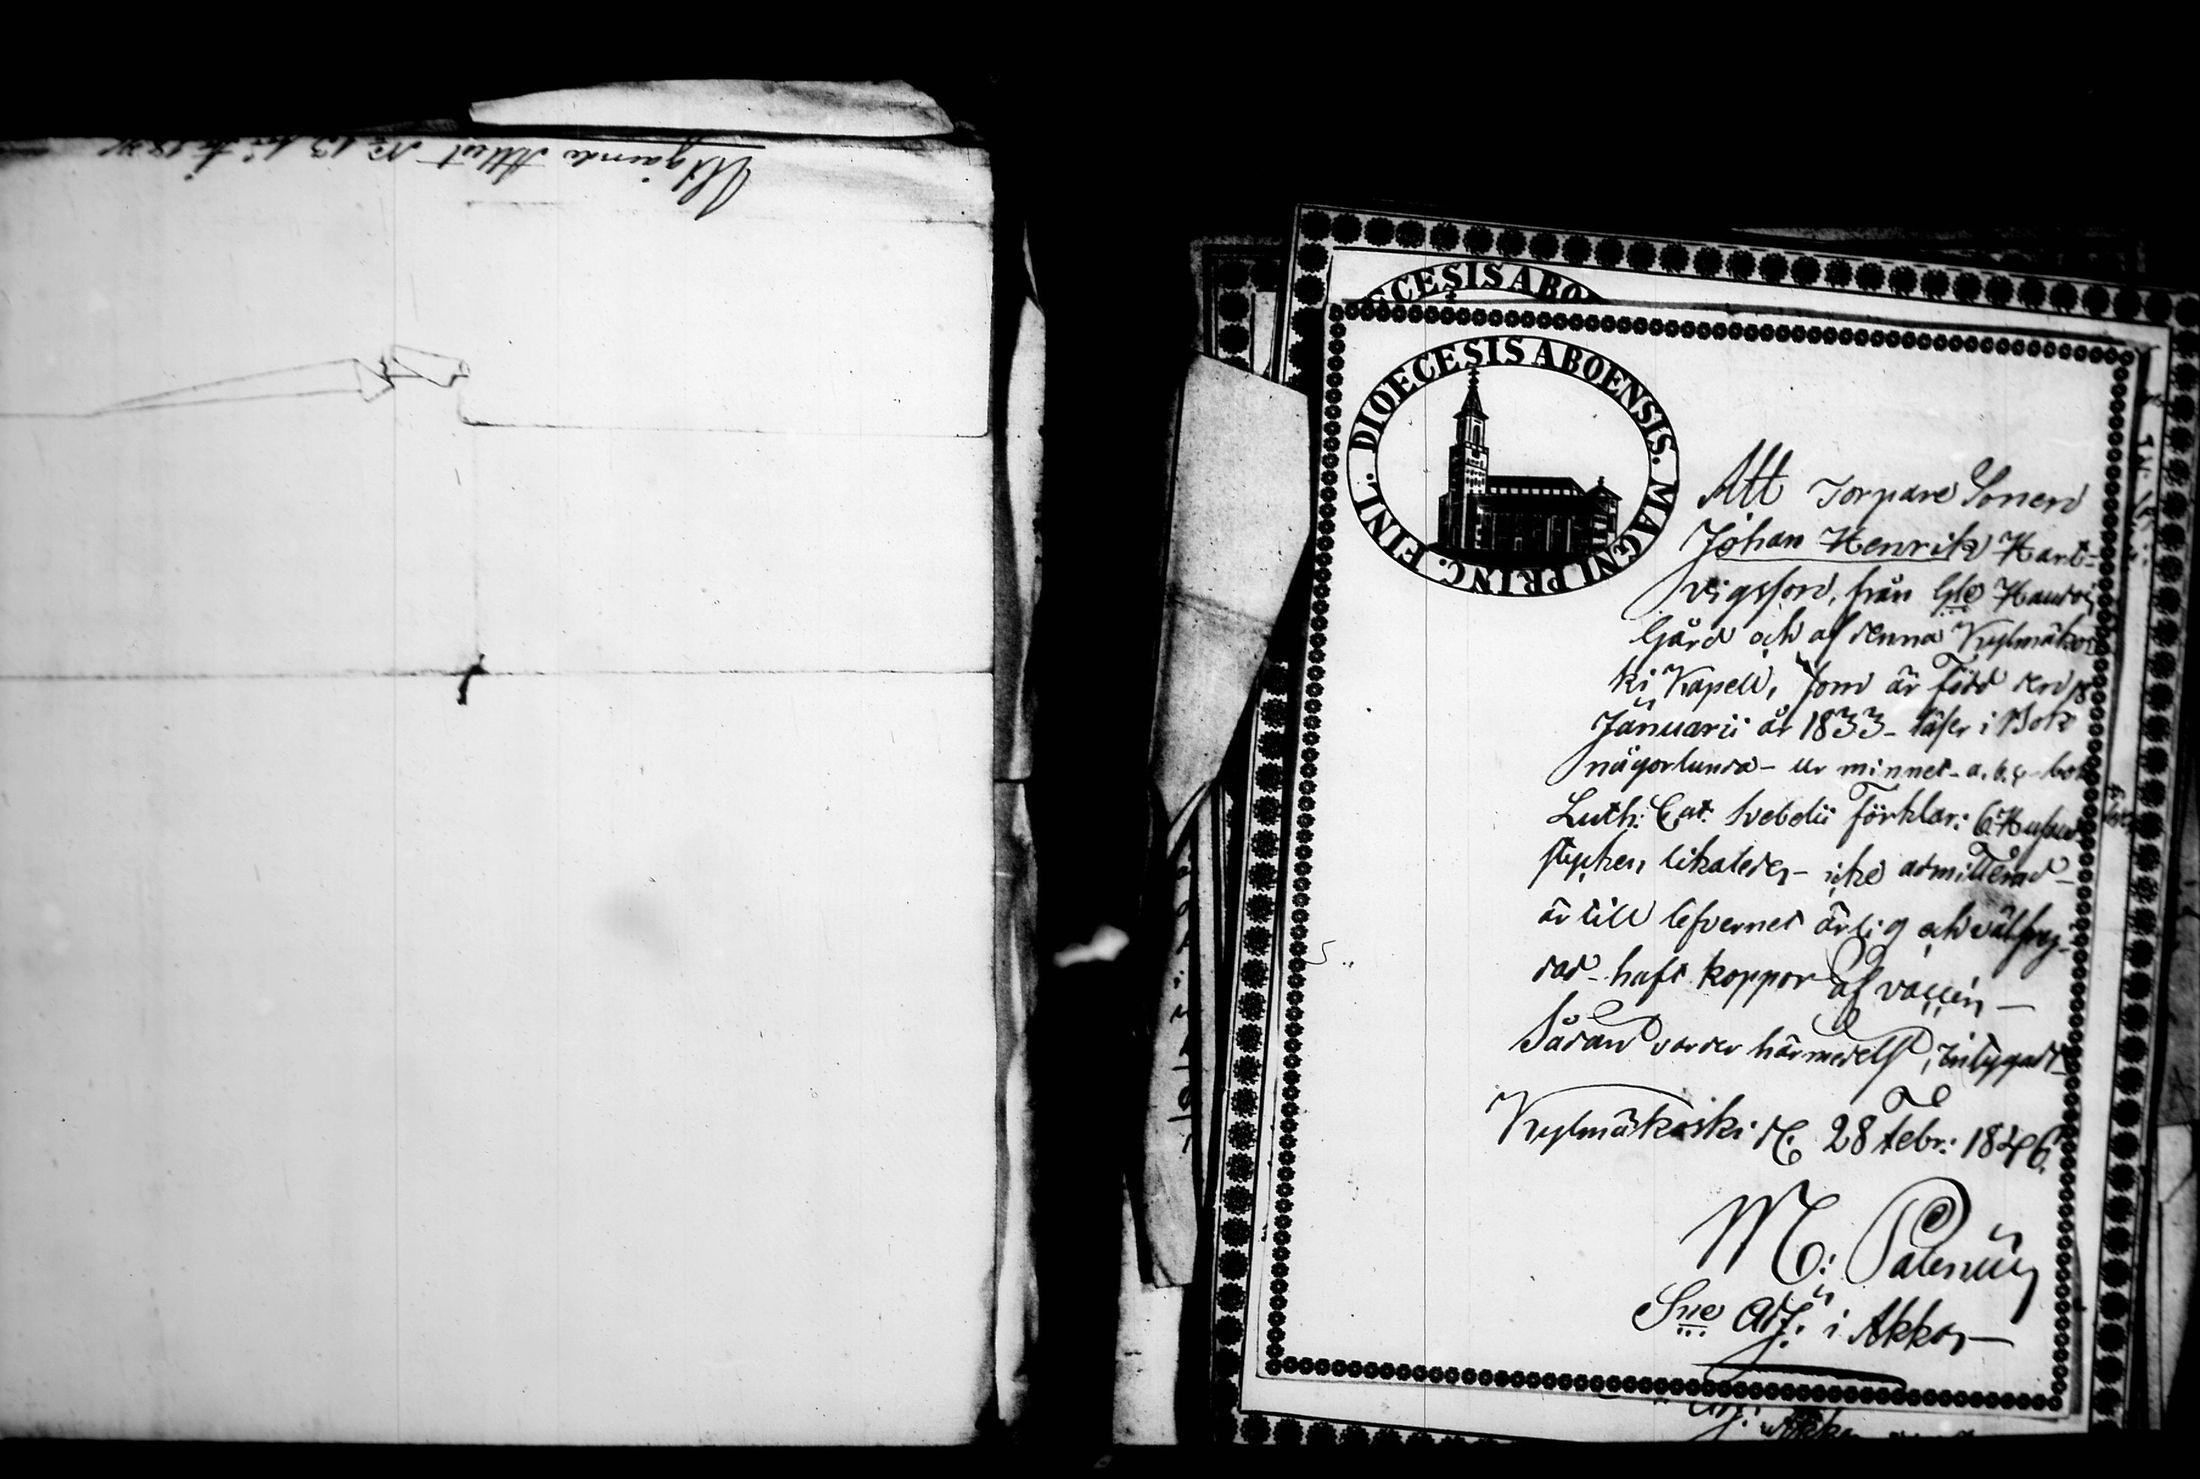 Utgående Attest No 13
DIOECESIS ABO
DIOECESIS ABOENSIS. MAGNI PRINC. FINL.
Att Torpare Sonen
Johan Henrik Hart-
vigsson, från
Gård och af denna Kylmäkos
ki Kapell, som är född den 18
Januarii år 1833 - läser i Bok
någorlunda - ur minnet - a.b.c - bok
Luth: Cat. Svebelii förklar: Hus
stycken likaledes - icke admitterad -
är till lefvernet ärlig och välfrej-
dad - haft koppor af vaccin -
Sådant varder härmedelst, intygadt -
Kylmäkoski d. 28 Febr: 1846.
M: Palenius
Sne Adj: i Akkas
Adj: Akka